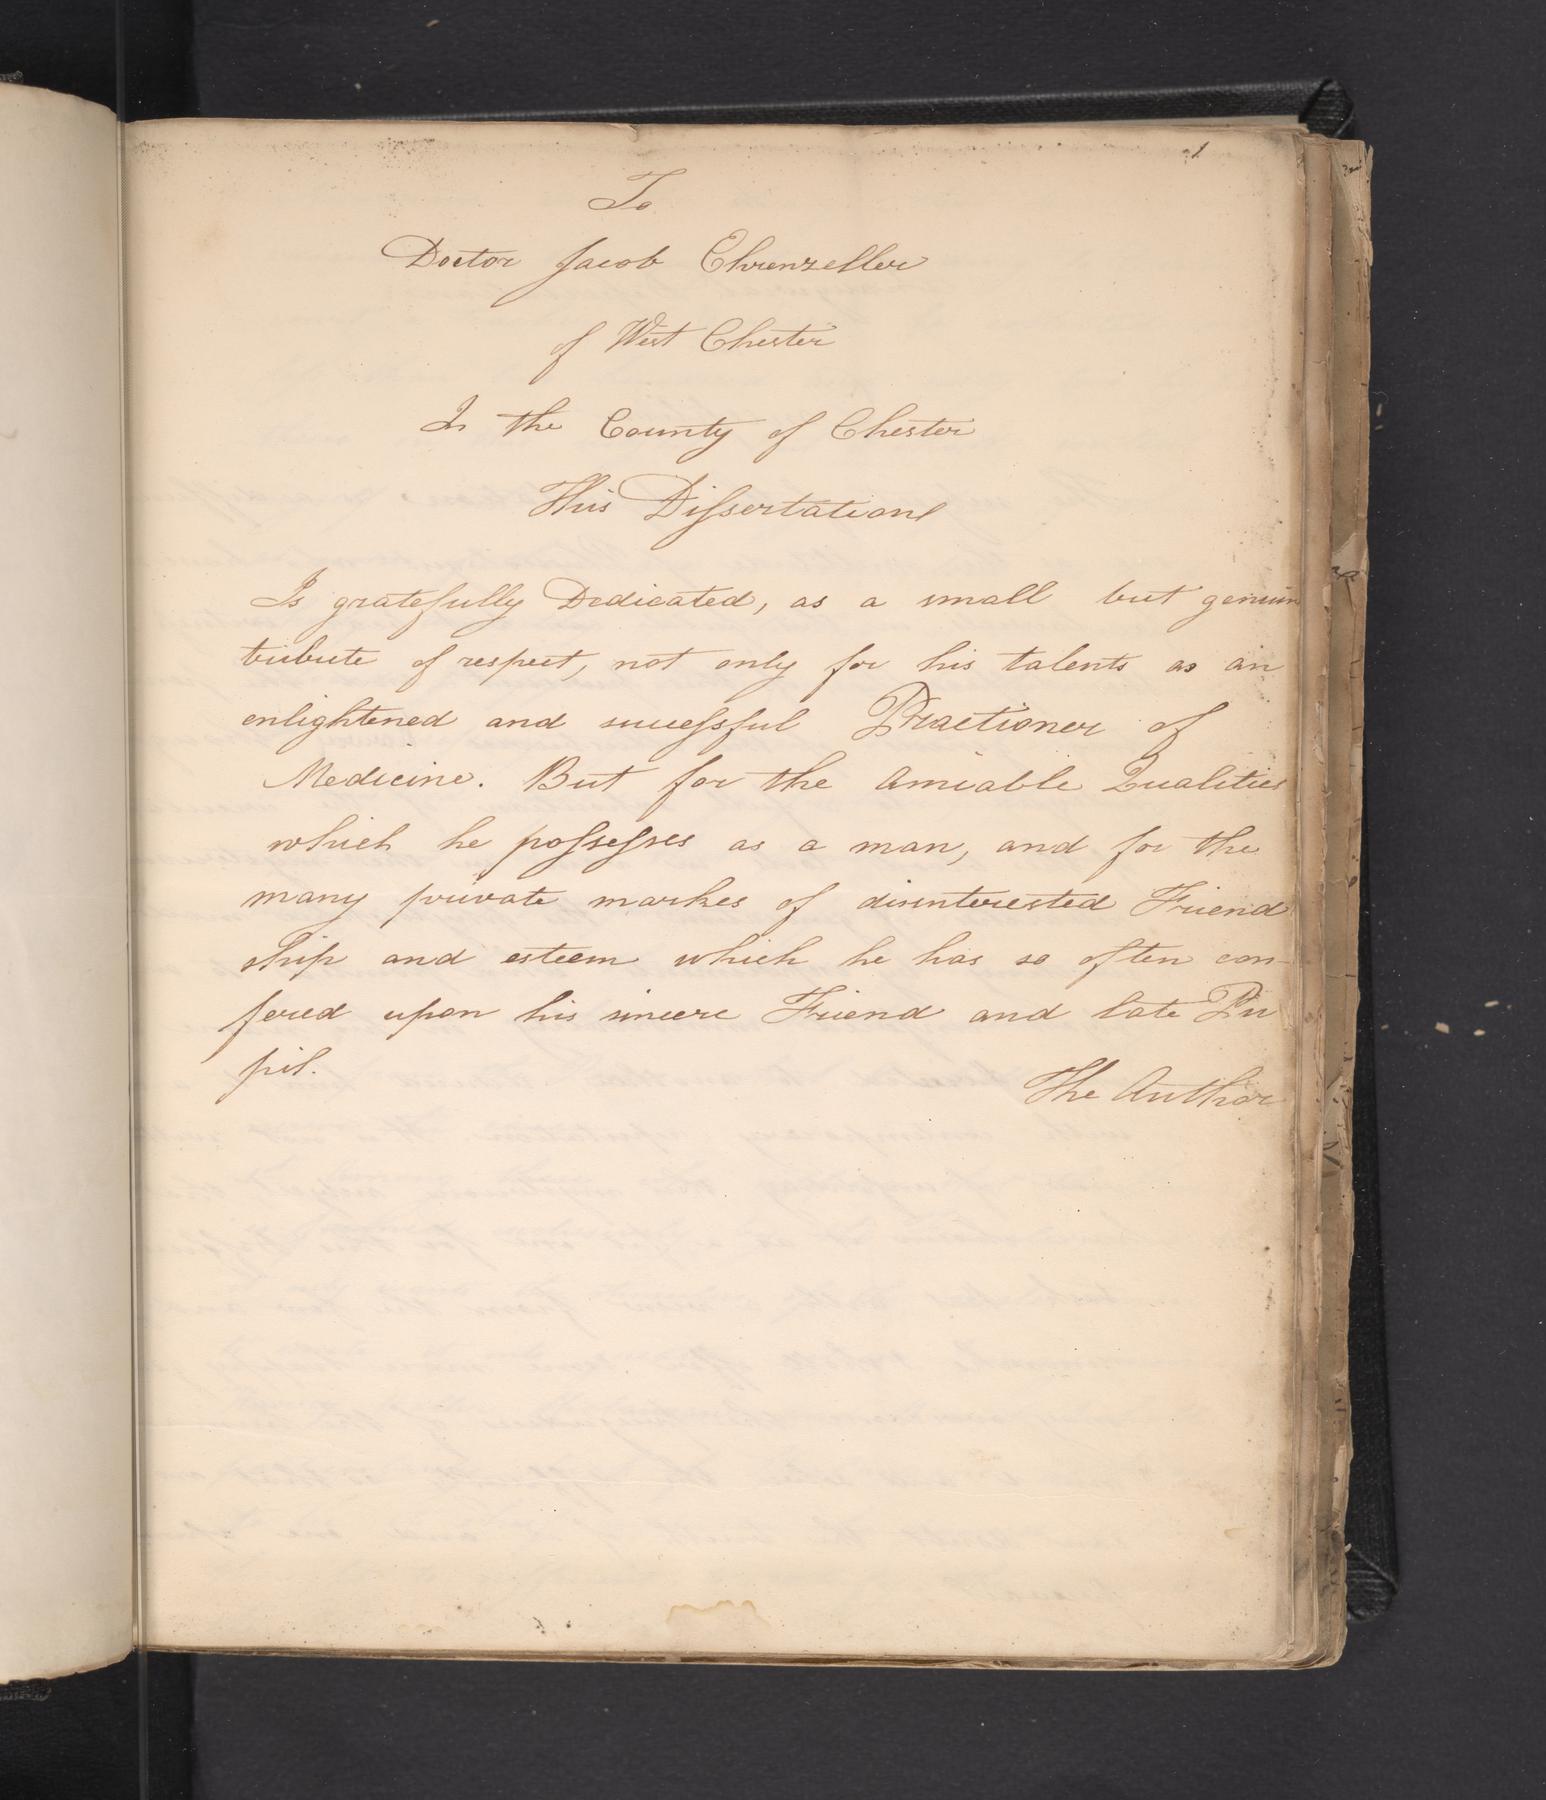 1
To
Doctor Jacob Ehrenzeller
of West Chester
In the County of Chester
This Dissertation
Is gratefully Dedicated, as a small but genuin
tribute of respect, not only for his talents as an
enlightened and successful Practioner of
Medicine. But for the Amiable Qualities
which he possesses as a man, and for the
many private markes of disinterested Friend
ship and esteem which he has so often con-
fered upon his sincere Friend and late Pu
pil.
The Author